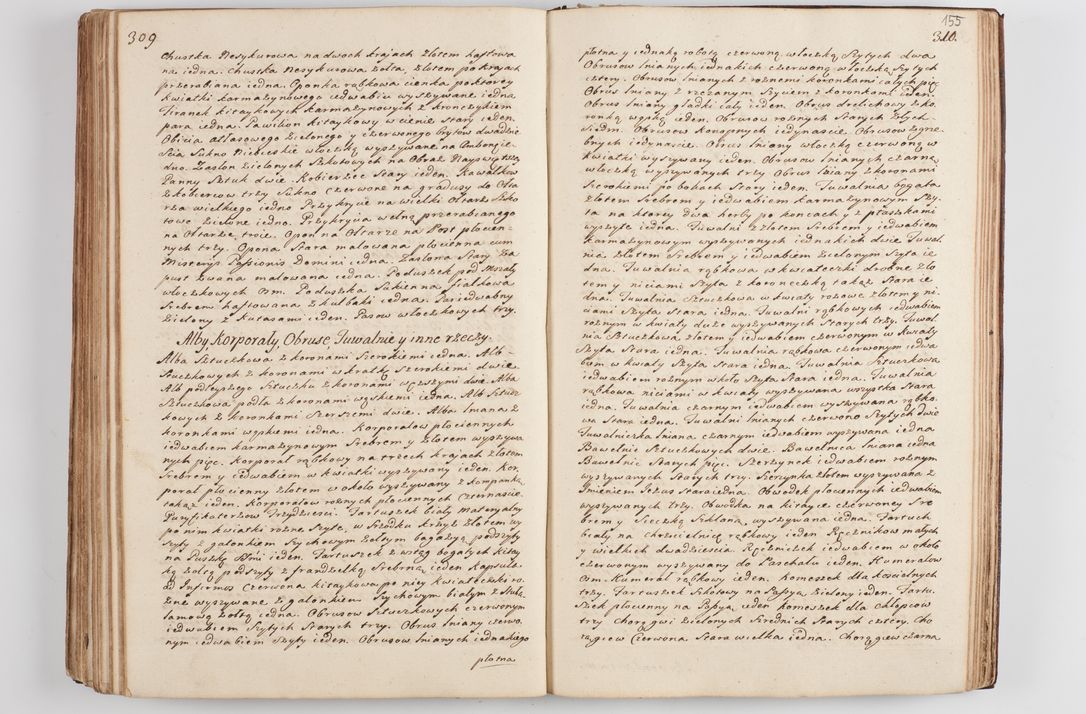 309
Chustka Nesykurowa na dwoch krajach złotem haftowa
na iedna. Chustka Nesykurowa żołta złotem po krajach
przerabiana iedna. Oponka rąbkowa cienka po ktorey
kwiatki karmazynowego iedwabiu wyszywane iedna
Firanek kitaykowych karmazynowych z Kronczykiem
para iedna. Pawilion kitaykowy w cienie stary ieden.
Obicia atłasowego zielonego y czerwonego Brytow dwadzie
ścia Sukno Niebieskie włoczką wyszywane na
dno. Zasłon zielonych Szkutowych na Obraz Nayswiętszy
Panny Sztuk dwie. Kobierzec Stary ieden. Kawałkow
z kobiercow trzy Sukno czerwone na gradusy do Ołta
rza wielkiego iedno. Przykrycie na wielki Ołtarz Szko
towe zielone iedno. Przykrycia wełną przerabianego
na Ołtarze troie. Opon na Ołtarze na Post płocien-
nych trzy. Opona Stara malowana płocienna cum
Misteriis Passionis Domini iedna. Zasłona Stary Za
pust zwana malowana iedna. Poduszek pod Mszały
włoczkowych osm. Poduszka Sukienna fiałkowa
srebrem haftowana z kulbaki iedna. Pas iedwabny
zielony z kutasami ieden. Pasow włoczkowych trzy.
Alby, Korporały, Obrusę, Tuwalnie y inne rzeczy.
Alba Sztuczkowa z koronami szerokiemi iedna. Alb-
Stuczkowych z koronami w kratkę szerokiemi dwie
Alb podleyszego Sztuczku z koronami węższymi dwie. Alba
Sztuczkowa podła z koronami wąskiemi iedna. Alb Sztucz
kowych z koronkami szerszemi dwie. Alba lniana z
koronkami wąskiemi iedna. Korporałow płociennych
iedwabiem karmazynowym srebrem y złotem wyszywa
nych pięc. Korporał rąbkowy na trzech krajach złotem
srebrem y iedwabiem w kwiatki wyszywany ieden. Kor,
porał płocienny złotem w około wyszywany z kompanką
takąż ieden. Korporałow rożnych płociennych czternaście.
Puryfikaterzow trzydzieści. Fartuszek biały materyalny
po nim kwiatki rożne szyte, w szrodku krzyż złotem wy
szyty z galonkiem szychowym żołtym bagażyą podszyty
na Puszkę Ołtni ieden. Fartuszek z wstęg bogatych kitay
ką żołtą podszyty z frandzelką srebrną ieden Kapsula
ad Infirmos czerwona kitaykowa po niey kwiateczki ro
żne wyszywane z galonkiem szychowym białym z stula
samową żołtą iedna. Obrusow Sztuczkowych czerwonym
iedwabiem szytych starych trzy. Obrus lniany czerwo,
nym iedwabiem szyty ieden. Obrusow lnianych iednakiego
płotna
155
310.
płotna y iednaką robotą czerwoną włoczką szytych dwa
Obrusow lnianych iednakich czerwoną włoczką szytych
cztery. Obrusow lnianych z rożnemi koronkami całych pięc
Obrus lniany z rzezanym szyciem z koronkami ieden.
Obrus lniany gładki cały ieden. Obrus drelichowy z ko,
ronką wąską ieden. Obrusow rożnych starych złych
siedm. Obrusow konopnych iedynascie. Obrusow zgrze,
bnych iedynascie. Obrus lniany włoczką czerwoną w
kwiatki wyszywany ieden. Obrusow lnianych czarną
włoczką wyszywanych trzy. Obrus lniany z koronami
szerokiemi po bokach stary ieden. Tuwalnia bogata
złotem srebrem y iedwabiem karmazynowym szy,
ta na ktorey dwa herby po koncach y z ptaszkami
wyszyte iedna. Tuwalni z złotem srebrem y iedwabiem
karmazynowym wyszywanych iednakich dwie. Tuwal,
nia złotem srebrem y iedwabiem zielonym szyta ie
dna. Tuwalnia rąbkowa w kwiateczki drobne zło
tem y niciami szyta z koroneczką takąż stara ie
dna. Tuwalnia Sztuczkowa w kwiaty rożowe złotem y ni,
ciami szyta stara iedna. Tuwalni rąbkowych iedwabiem
rożnym w kwiaty duże wyszywanych starych trzy. Tuwal
nia Sztuczkowa złotem y iedwabiem czerwonym w kwiaty
szyta stara iedna. Tuwalnia rąbkowa czerwonym iedwa
biem w kwiaty szyta stara iedna. Tuwalnia Sztuczkowa
iedwabiem rożnym wkoło szyta stara iedna. Tuwalnia
rąbkowa niciami w kwiaty wyszywana wszystka stara
iedna. Tuwalnia czarnym iedwabiem wyszywana rąbko,
wa stara iedna. Tuwalni lnianych czerwono szytych dwie
Tuwalniczka lniana czarnym iedwabiem wyszywana iedna
Bawełnic Sztuczkowych dwie. Bawełnica lniana iedna
Bawełnic starych pięc. Szerzynek iedwabiem rożnym
wyszywanych starych trzy. Szerzynka złotem wyszywana z
Imieniem Jezus stara iedna. Obwodek płociennych iedwabiem
wyszywanych trzy. Obwodka na kitayce czerwoney sre
brem y sieczką szklaną wyszywana iedna. Fartuch
biały na Chrzcielnicę rąbkowy ieden Ręcznikow małych
y wielkich dwadziescia. Ręczniczek iedwabiem w około
czerwonym wyszywany do Paschału ieden. Humerałow
osm. Humerał rąbkowy ieden. komeszek dla kościelnych
trzy. Fartuszek Szkotowy na Passyą zielony ieden. Fartu,
szek płocienny na Passyą ieden komeszek dla chłopcow
trzy Chorągwi zielonych szrednich starych cztery. Cho
rągiew czerwona stara wielka iedna. Chorągiew czarna